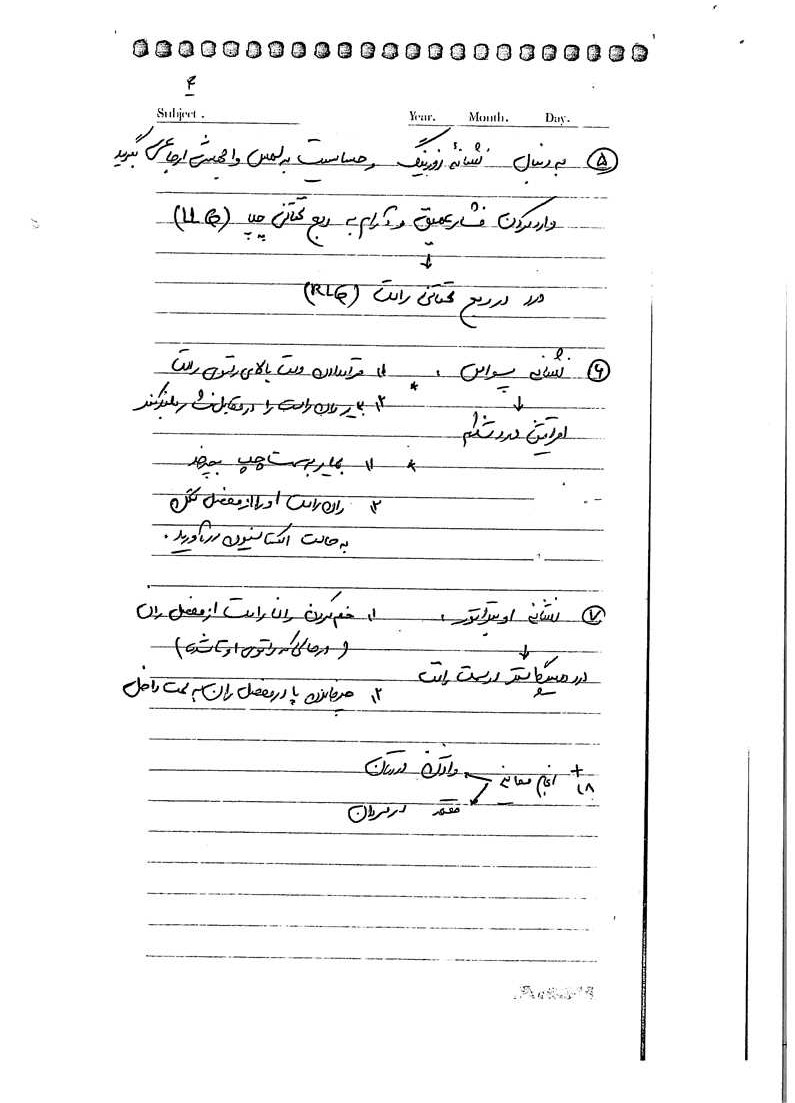 ۴
Subject . Year. Month. Day.
۵ به دنبال نشانهٔ روزینگ و حساسیت به لمس واجهشی ارجاعی بگردید
وارد کردن فشار عمیق و آرام به ربع تحتانی چپ (LLQ)
↓
درد در ربع تحتانی راست (RLQ)
۶ نشانه پسواس : ۱. قرار دادن دست بالای زانوی راست
↓ * ۲. بیمار ران راست را در مقابل فشار بلند کند
افزایش درد شکم
* ۱. بیمار به سمت چپ بچرخد
۲. ران راست او را از مفصل لگن
به حالت اکستانسیون درآورید.
۷ نشانه اوبتراتور : ۱. خم کردن ران راست از مفصل ران
↓ (در حالی که زانوی او تا شده)
درد هیپوگاستر در سمت راست
۲. چرخاندن پا در مفصل ران به سمت داخل
+
۸. انجام معاینه واژن در زنان
مقعد در مردان